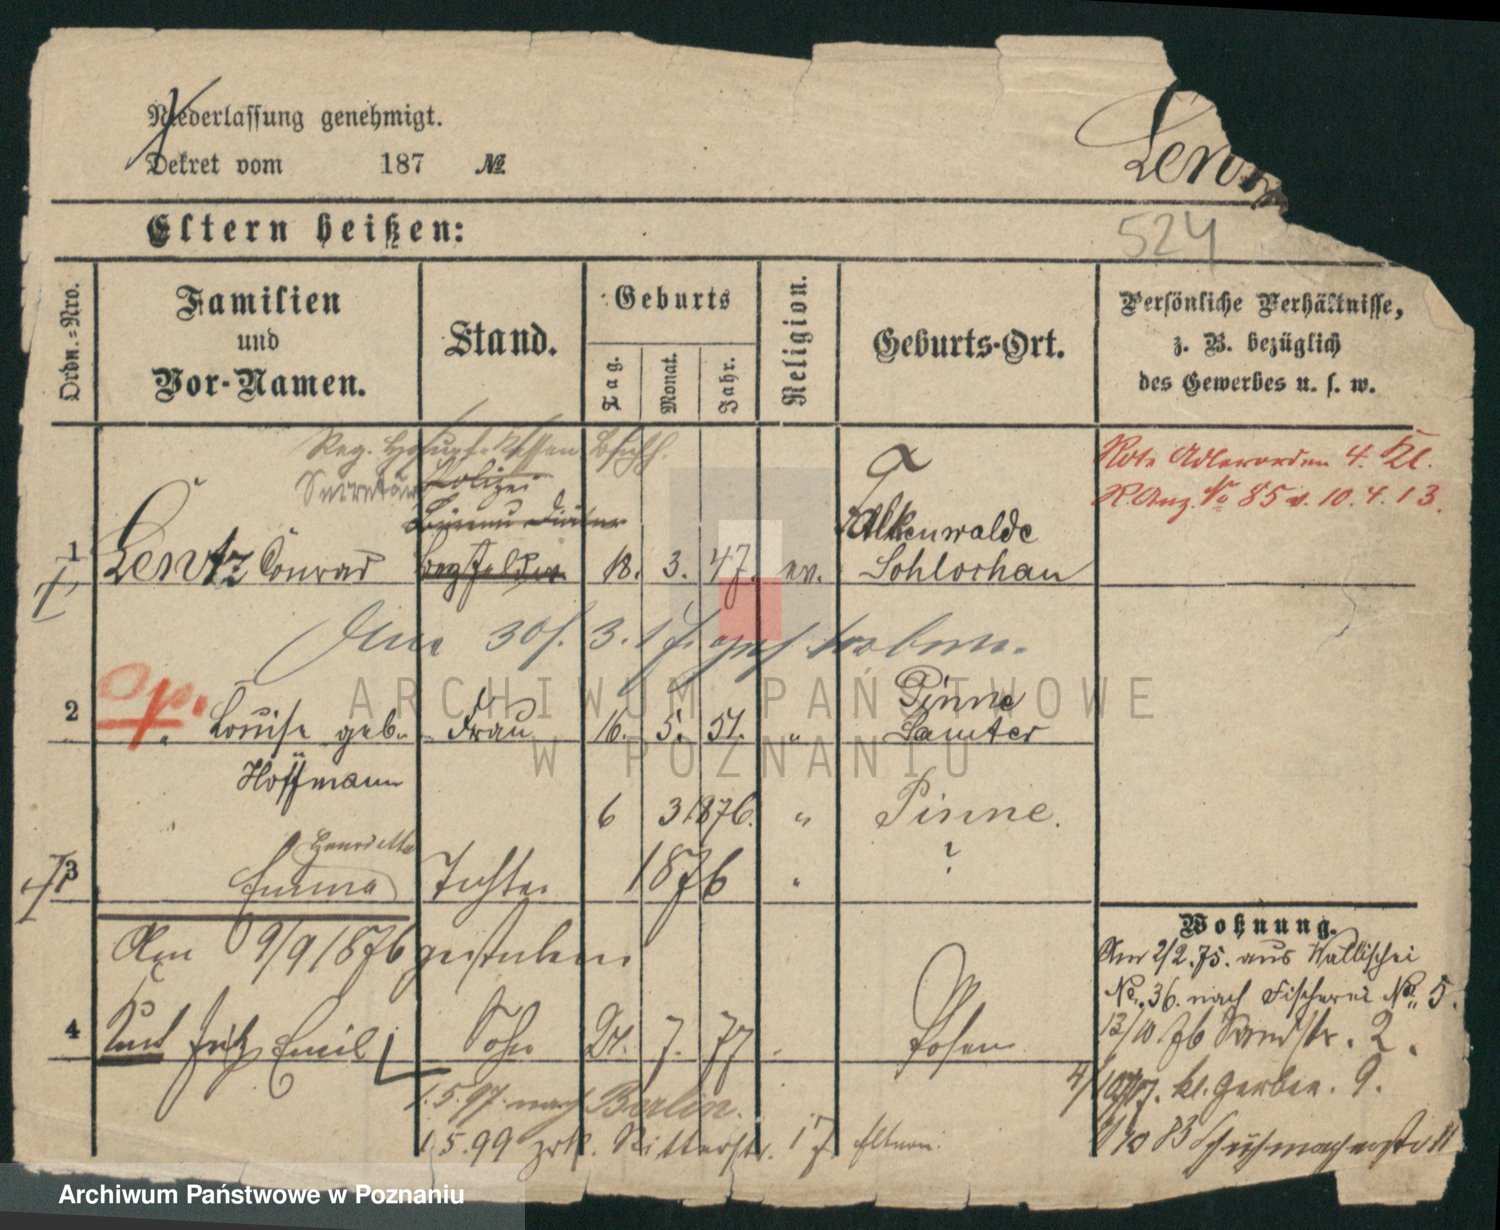 Niederlassung genehmigt.
Dekret vom 187 №
Lentz
524
Eltern heißen:
Ordn.=Nro.
Familien und Vor-Namen.
Stand.
Geburts
Tag.
Monat.
Jahr.
Religion.
Geburts-Ort.
Persönliche Verhältnisse,
z. B. bezüglich
des Gewerbes u. s. w.
Reg. Haupt-Kassen Buchh.
Secretär Polizei
Büreau Diätar
Rote Adlerorden 4. Kl.
R. Anz. No 85 v. 10.4.13.
Falkenwalde
1 Lentz Conrad Bezfeldw. 18. 3. 47. ev. Schlochau
Am 30/. 3. 17. gestorben.
Pinne
2 " Louise geb. Frau 16. 5. 51. " Samter
Hoffmann
6 3 1876. " Pinne.
Henriette
?
3 Emma Tochter 1876 "
Am 9/9 1876 gestorben
4 Curt Fritz Emil Sohn 21. 7. 77 Posen
1.5.97. nach Berlin.
1.5.99 zrk. Ritterstr. 17 Eltern.
Wohnung.
Am 2/2.75. aus Wallischei
No. 36. nach Fischerei No. 5.
13/10 76 Sandstr. 2.
4/10 77. kl. Gerber. 9.
1/10 83 Schuhmacherstr 11
ARCHIWUM PAŃSTWOWE
W POZNANIU
Archiwum Państwowe w Poznaniu